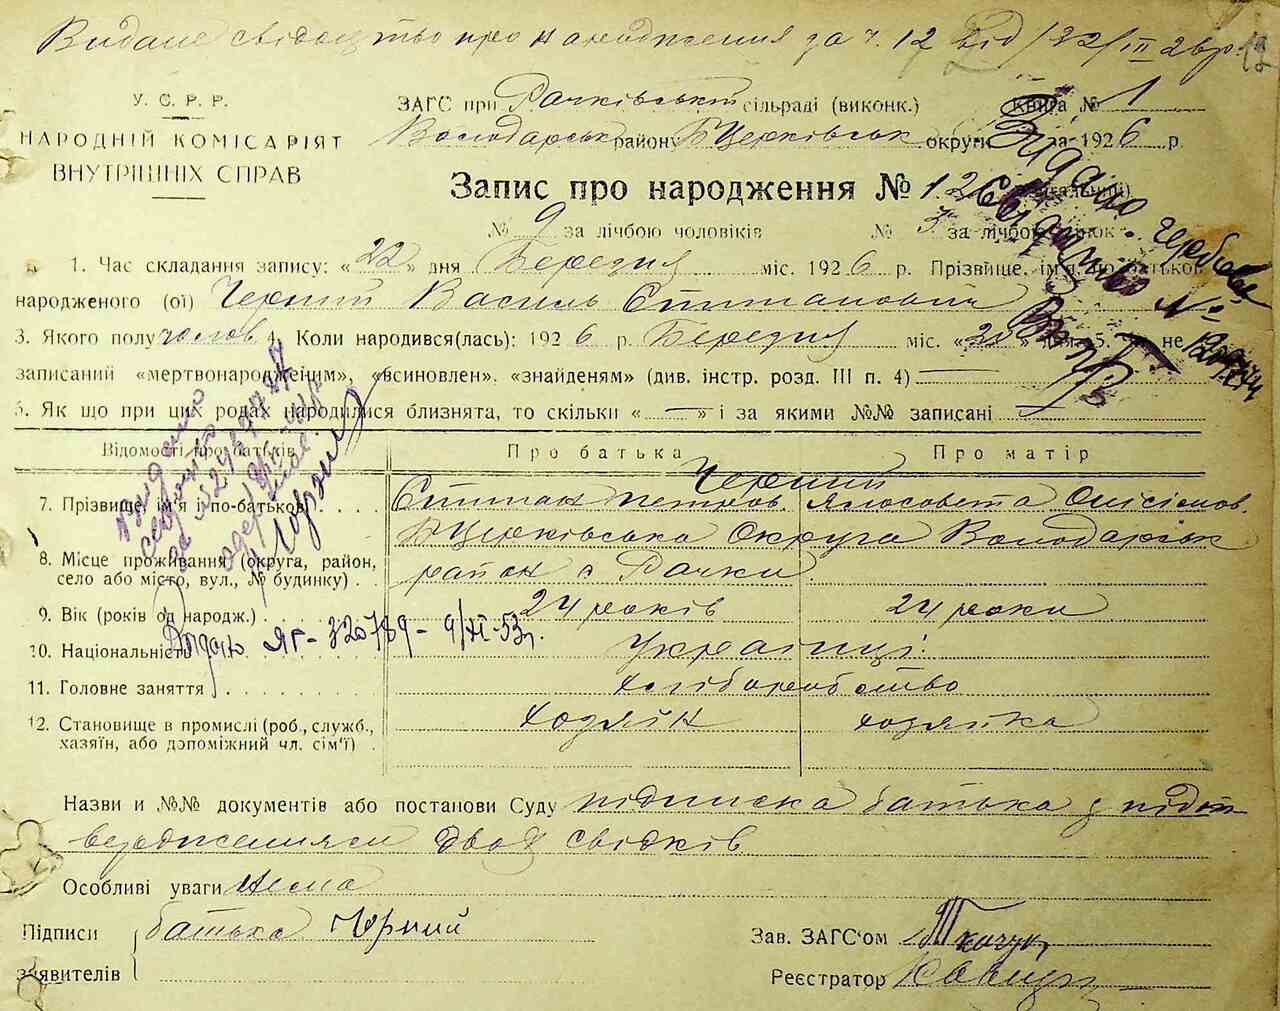 Видане свідоцтво про народження за ч. 12 від 22/III 26 р.
12
У. С. Р. Р.
НАРОДНІЙ КОМІСАРІЯТ
ВНУТРІШНІХ СПРАВ
ЗАГС при Рачківській сільраді (виконк.)
Книга № 1
Володарськ району Б Церківськ округи за 1926 р.
Запис про народження № 12
№ 9 за лічбою чоловіків № 3 за лічбою жінок
1. Час складання запису: « 22 » дня Березня міс. 1926 р. Прізвище, ім'я, по-батькові
народженого (ої) Черний Василь Степанович
3. Якого полу чолов 4. Коли народився(лась): 1926 р. Березня міс. « » дня 5. не
записаний «мертвонародженим», «всиновлен», «знайденям» (див. інстр. розд. III п. 4) —
6. Як що при цих родах народилися близнята, то скільки « — » і за якими №№ записані —
Видано
свідоцтво
Видано
Свідоцтво №
Відомості про батьків
Про батька
Про матір
Черний
7. Прізвище, ім'я і по-батькові
Степан Петров.
8. Місце проживання (округа, район,
село або місто, вул., № будинку)
Б Церківська Округа Володарськ
район с Рачки
9. Вік (років од народж.)
24 років
24 роки
Додано ЯГ - 320789 - 9/XI-53р.
10. Національність
Українці
11. Головне заняття
хліборобство
12. Становище в промислі (роб., служб.,
хазяїн, або допоміжний чл. сім'ї)
хозяїн
хозяйка
Назви и №№ документів або постанови Суду підписка батька з підт
вердженням двох свідків
Особливі уваги нема
Підписи
заявителів
батька Чорний
Зав. ЗАГС'ом Ткачук
Реєстратор